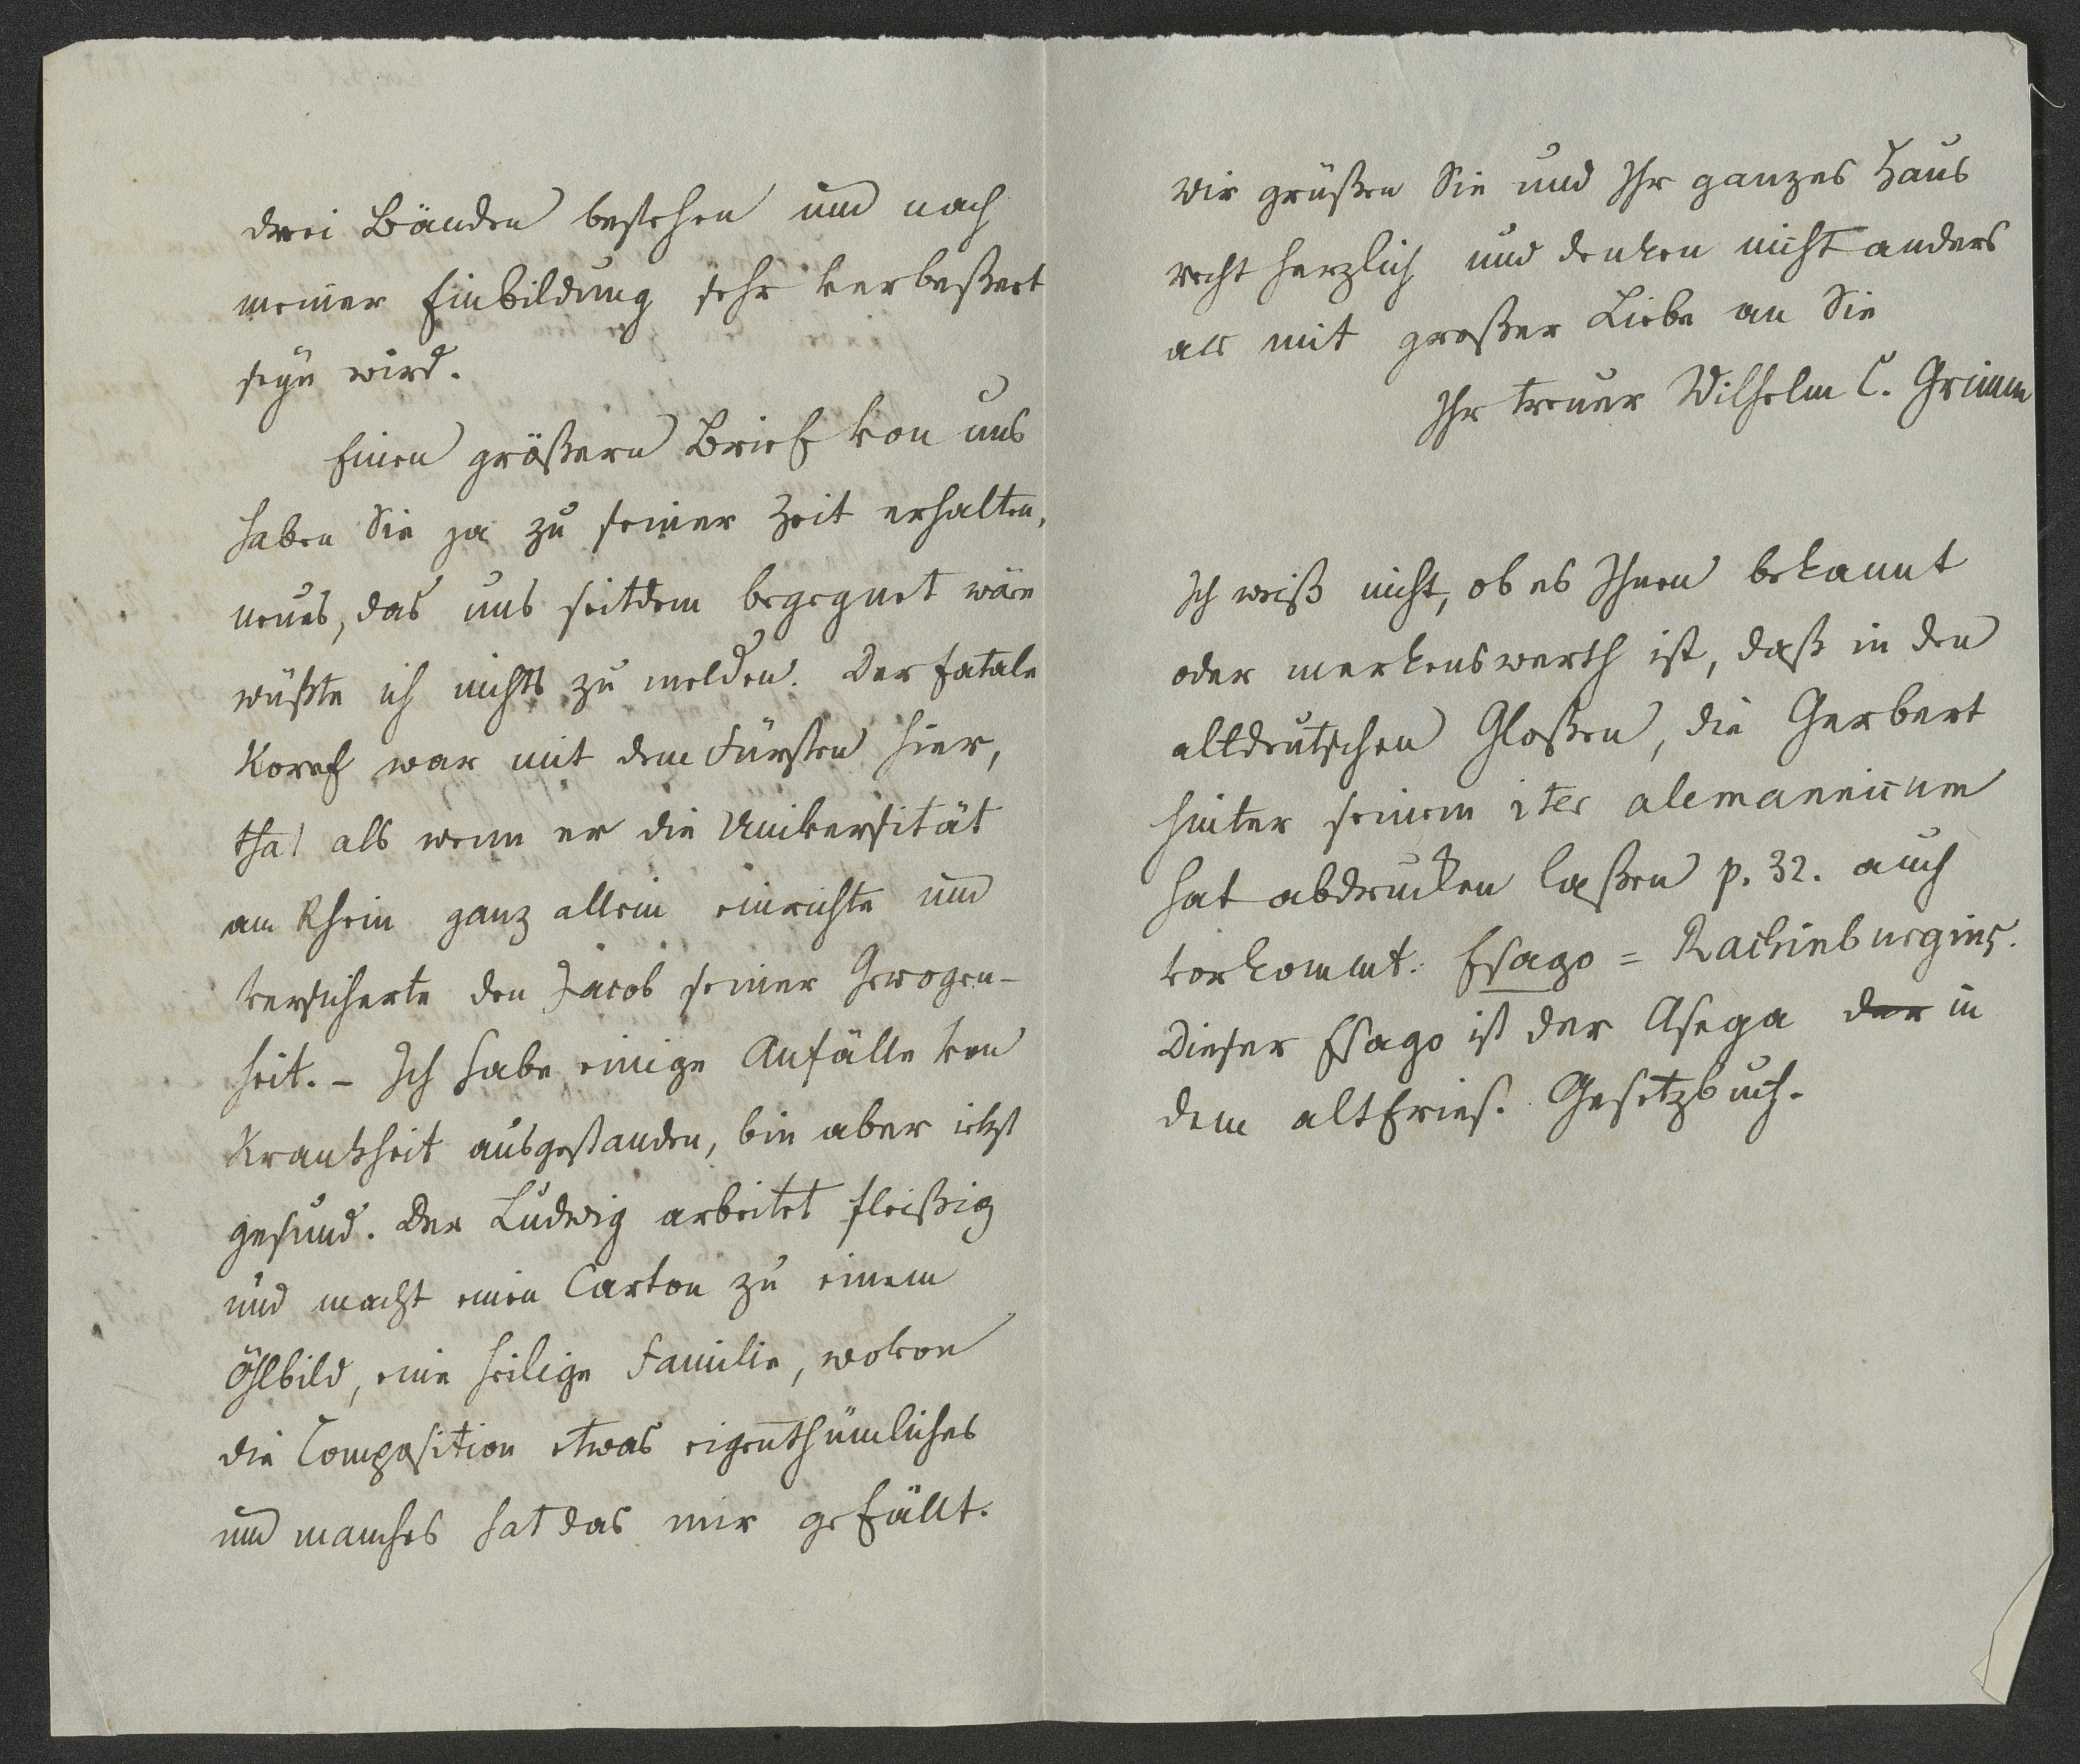 drei Bänden bestehen und nach
meiner Einbildung sehr verbeßert
seyn wird.
Einen größern Brief von uns
haben Sie ja zu seiner Zeit erhalten,
neues, das uns seitdem begegnet wäre
wüßte ich nichts zu melden. Der fatale
Koref war mit dem Fürsten hier,
that als wenn er die Universität
am Rhein ganz allein einrichte und
versicherte den Jacob seiner Gewogen-
heit. – Ich habe einige Anfälle von
Krankheit ausgestanden, bin aber jetzt
gesund. Der Ludwig arbeitet fleißig
und macht einen Carton zu einem
Öhlbild, eine heilige Familie, wovon
die Composition etwas eigenthümliches
und manches hat das mir gefällt.
Wir grüßen Sie und Ihr ganzes Haus
recht herzlich und denken nicht anders
als mit großer Liebe an Sie
Ihr treuer Wilhelm C. Grimm
Ich weiß nicht, ob es Ihnen bekannt
oder merkenswerth ist, daß in den
altdeutschen Gloßen, die Gerbert
hinter seinem iter alemannicum
hat abdrucken laßen p. 32. auch
vorkommt: Esago = Rachinburgius.
Dieser Esago ist der Asega der in
dem altfries. Gesetzbuch.